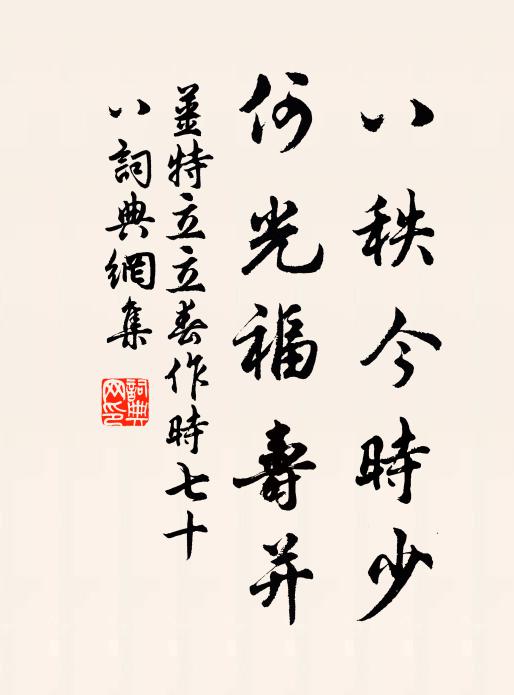 八秩今時少
何光福壽并
姜特立立春作時七十
八詞典網集
詞典
网印